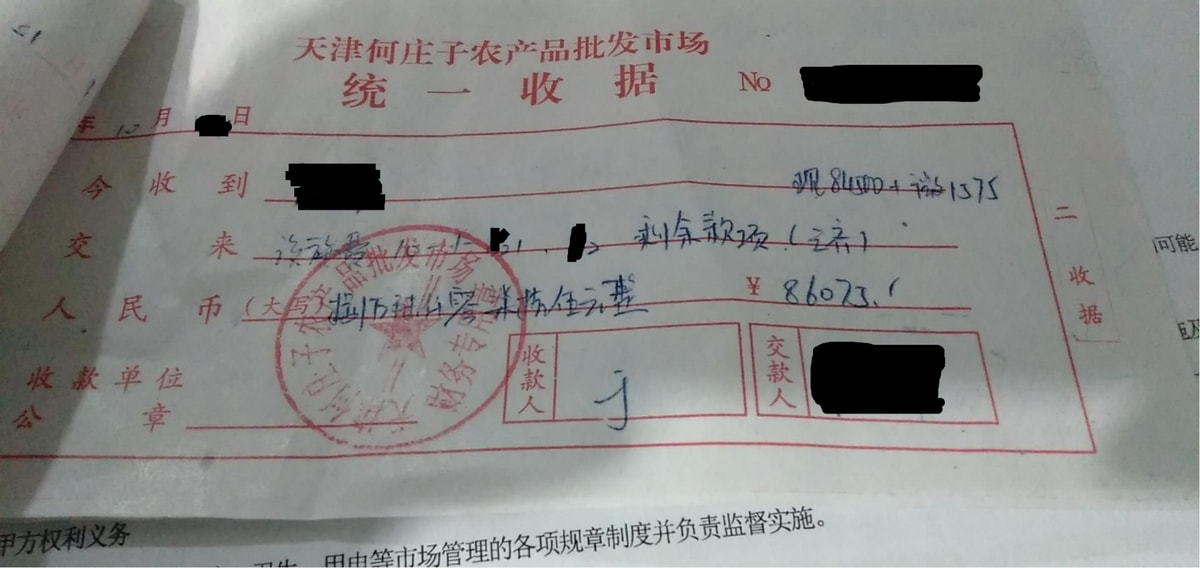 天津何庄子农产品批发市场
统一收据 No
年 12 月 日
今收到 现84500+微1575
交来 设施费 剩余款项（
人民币（大写）捌万陆仟零柒拾伍元整 ¥ 86075.
收款单位
公章
收款人
交款人
二收据
天津何庄子农产品批发市场
财务专用章
可能
甲方权利义务
卫生、用电等市场管理的各项规章制度并负责监督实施。